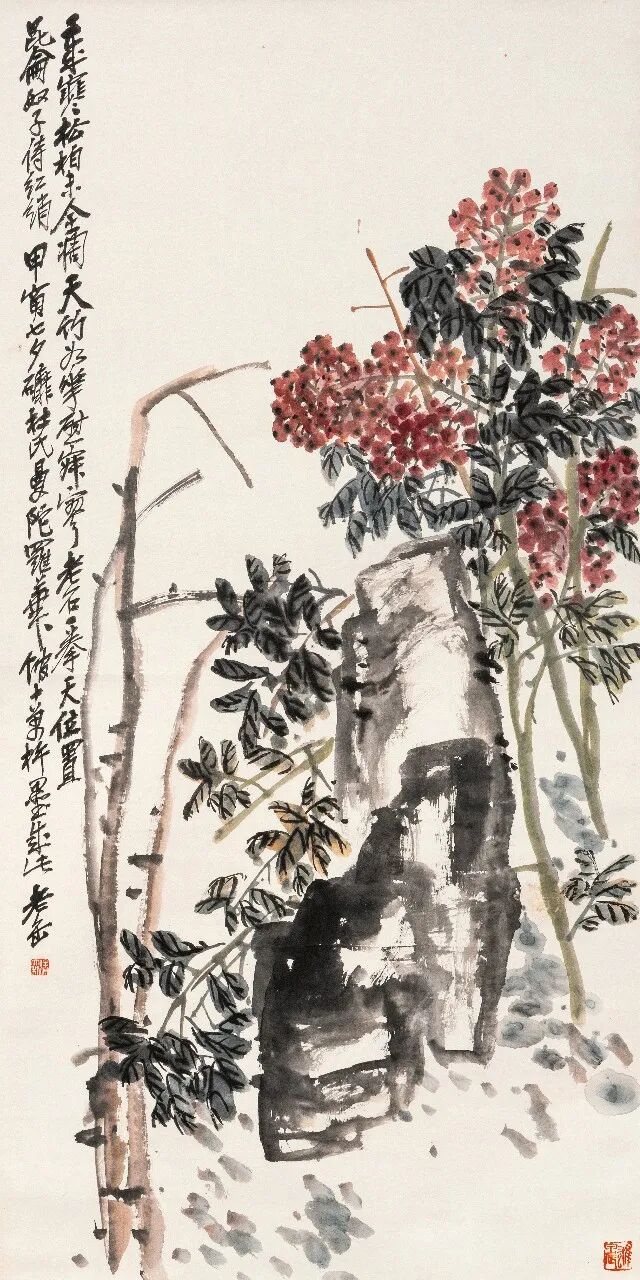 歲寒松柏未全凋天竹如華耐寂寥老石一拳天位置
昆侖奴子侍紅綃 甲寅七夕磨杜氏曼陀羅華館十萬杵墨成此 老缶